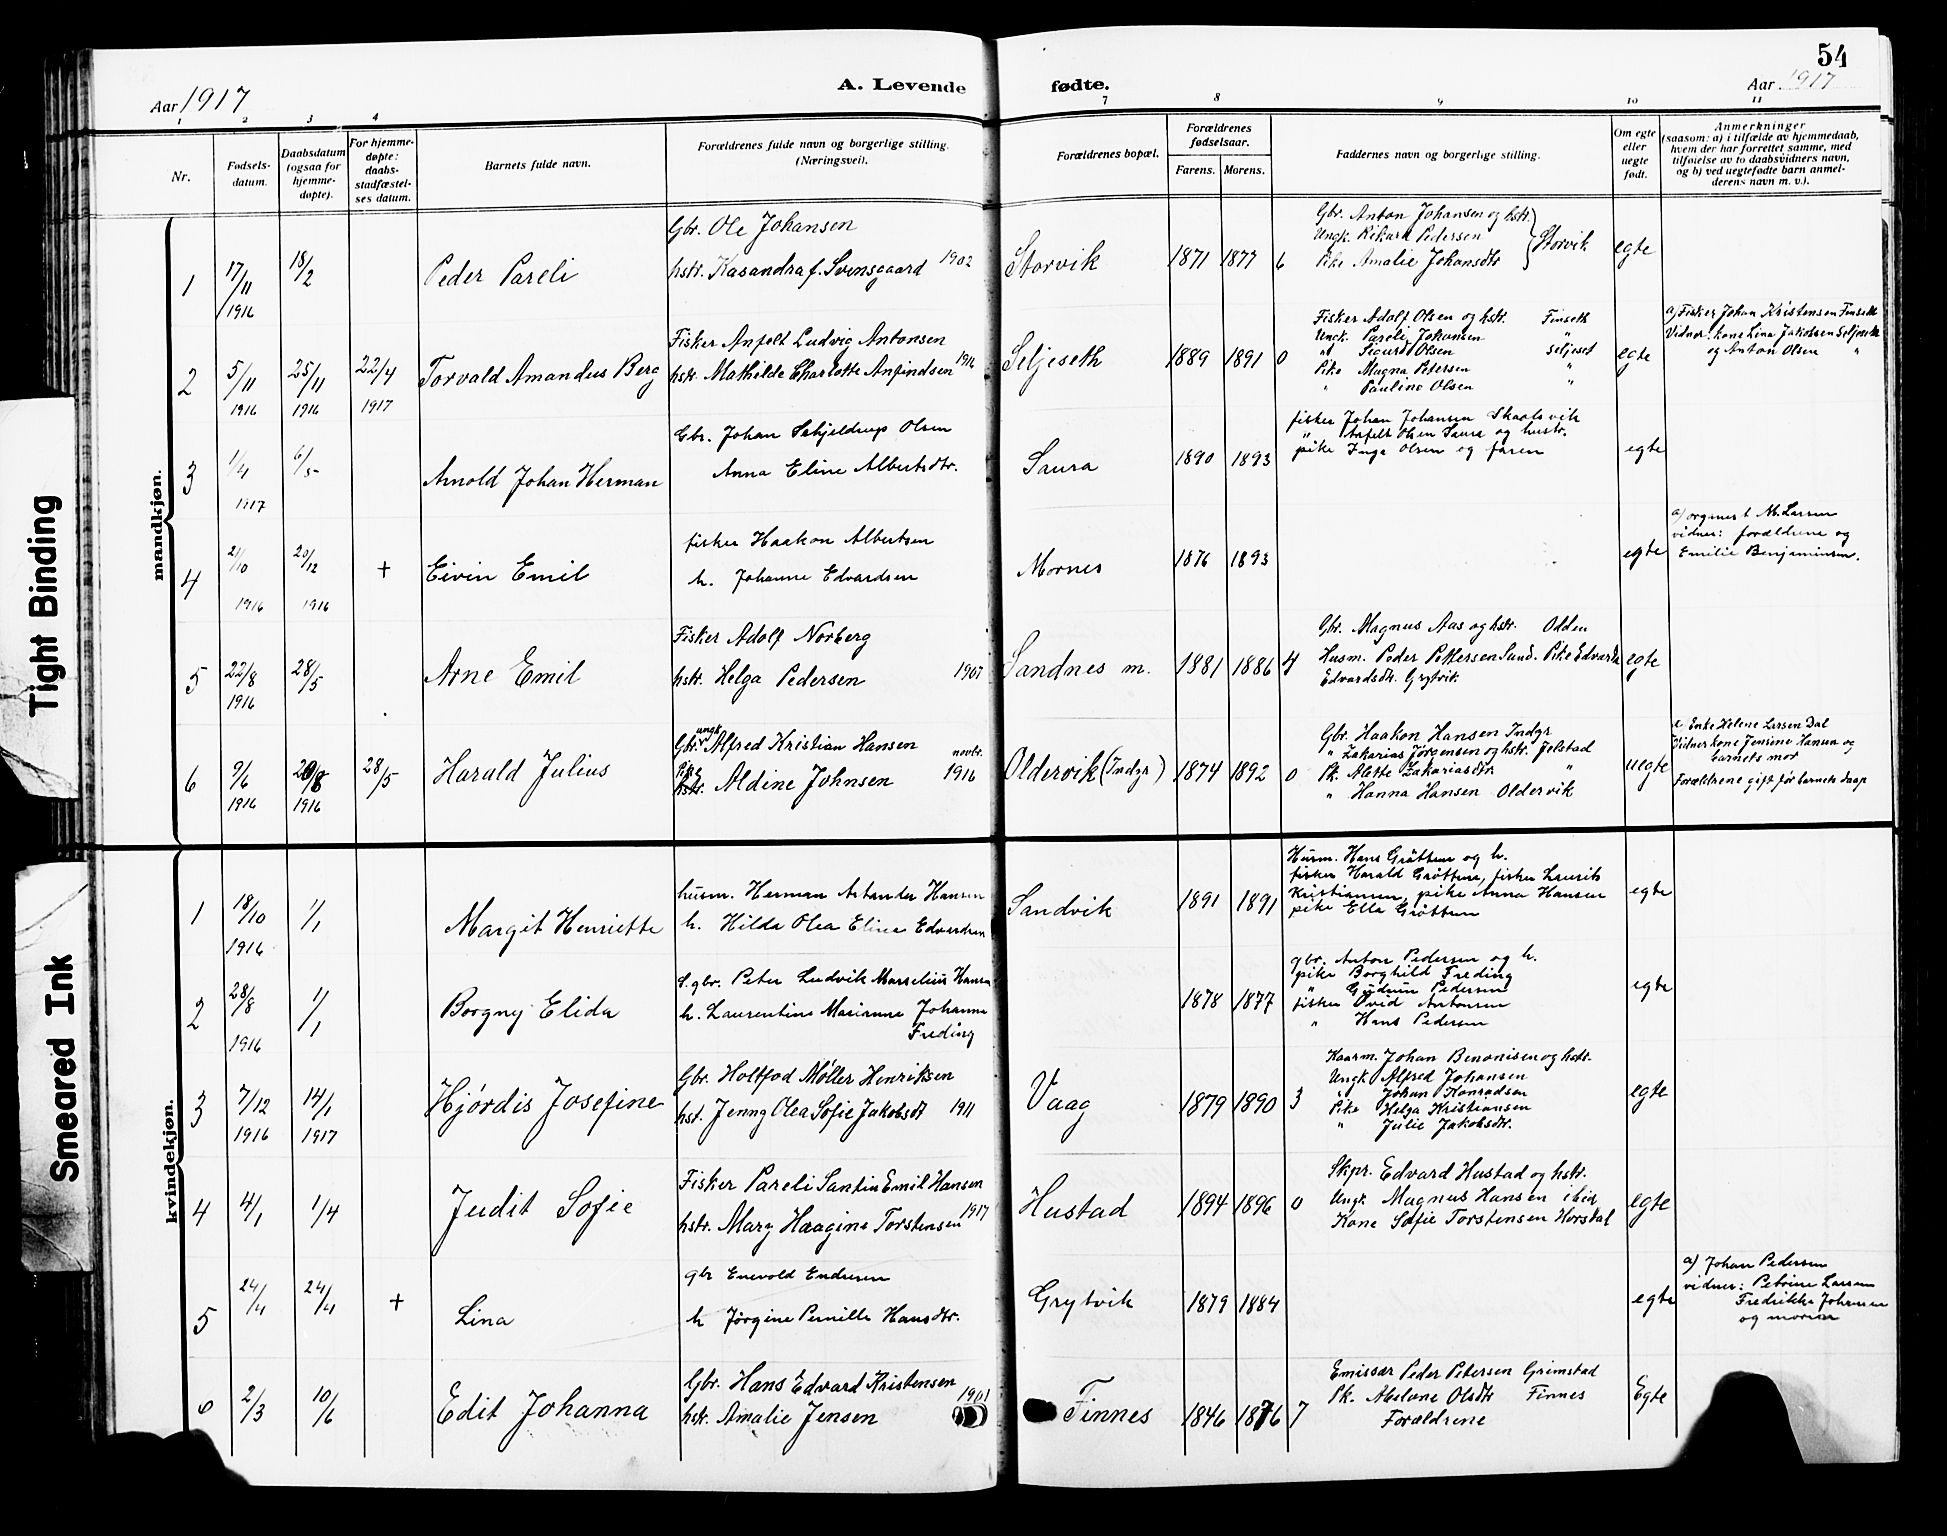 54
A. Levende fødte.
Aar 1917
Aar 1917
1 2 3 4 7 8 9 10 11
Nr.
Fødsels-
datum.
Daabsdatum
(ogsaa for
hjemme-
døpte).
For hjemme-
døpte:
daabs-
stadfæstel-
ses datum.
Barnets fulde navn.
Forældrenes fulde navn og borgerlige stilling.
(Næringsvei).
Forældrenes bopæl.
Forældrenes
fødselsaar.
Farens. Morens.
Faddernes navn og borgerlige stilling.
Om egte
eller
uegte
født.
Anmerkninger
(saasom: a) i tilfælde av hjemmedaab,
hvem der har forrettet samme, med
tilføielse av to daabsvidners navn,
og b) ved uegtefødte barn anmel-
derens navn m. v.).
mandkjøn.
1 17/11 1916 18/2 Peder Pareli
Gbr. Ole Johansen
hstr. Kasandra f. Svensgaard 1902
Storvik 1871 1877 6
Gbr. Anton Johansen og hstr.
Ungk. Rikard Pedersen
Pike Amalie Johansdtr
Storvik
egte
2 5/11 1916 25/11 1916 22/4 1917 Torvald Amandus Berg
Fisker Anfelt Ludvig Antonsen
hstr. Mathilde Charlotte Anfindsen 1916
Seljeseth 1889 1891 0
Fisker Adolf Olsen og hstr. Finseth
Ungk. Pareli Johansen "
" Sigurd Olsen Seljeset
Pike Magna Petersen "
" Pauline Olsen "
egte
a) Fisker Johan Kristensen Finseth
Vidner: kone Lina Jakobsen Seljeseth
og Anton Olsen "
3 1/4 1917 6/5 Arnold Johan Herman
Gbr. Johan Schjeldrup Olsen
Anna Eline Albertsdtr.
Saura 1890 1893
fisker Johan Johansen Skaalsvik
" Anfelt Olsen Saura og hustr.
pike Inga Olsen og faren
egte
4 21/10 1916 20/12 1916 + Eivin Emil
fisker Haakon Albertsen
h. Johanne Edvardsen
Mornes 1876 1893
egte
a) orgmest M. Larsen
vidner: forældrene og
Emilie Benjaminsen.
5 22/8 1916 28/5 Arne Emil
Fisker Adolf Norberg
hstr. Helga Pedersen 1907
Sandnes m. 1881 1886 4
Gbr. Magnus Aas og hstr. Odden
Husm. Peder Pettersen Sund. Pike Edvarda
Edvardsdtr. Grytvik
egte
6 9/6 1916 20/8 1916 28/5 Harald Julius
ungk.
Gbr. Alfred Kristian Hansen novbr.
Pike
hstr. Aldine Johnsen 1916
Oldervik (Indgr) 1874 1892 0
Gbr. Haakon Hansen Indgr
" Zakarias Jørgensen og hstr. Jelstad
Pk. Alette Zakariasdtr "
" Hanna Hansen Oldervik
uegte
Enke Helene Larsen Dal
Vidner kone Jensine Hansen og
barnets mor
Forældrene gift før barnets daap
kvindekjøn.
1 18/10 1916 1/1 Margit Henriette
husm. Herman Astander Hansen
h. Hilda Olea Elina Edvardsen
Sandvik 1891 1891
Husm. Hans Grøttum og h.
fisker Harald Grøttum, fisker Laurits
Kristiansen, pike Anna Hansen
pike Ella Grøttum
egte
2 28/8 1916 1/1 Borgny Elida
S. gbr. Peter Ludvik Marselius Hansen
h. Laurentine Marianne Johanna
Freding
1878 1877
gbr. Anton Pedersen og h.
pike Borghild Freding
" Gudrun Pedersen
fisker Ovid Antonsen
" Hans Pedersen
egte
3 7/12 1916 14/1 1917 Hjørdis Josefine
Gbr. Holtfod Møller Henriksen
hst. Jenny Olea Sofie Jakobsdt 1911
Vaag 1879 1890 3
Kaarm. Johan Benonisen og hstr.
Ungk. Alfred Johansen
" Johan Konradsen
Pike Helga Kristiansen
" Julie Jakobsdtr.
egte
4 4/1 1/4 Judit Sofie
Fisker Pareli Santin Emil Hansen
hstr. Mary Haagine Torstensen 1917
Hustad 1894 1896 0
Skpr. Edvard Hustad og hstr.
Ungk. Magnus Hansen ibid
Kone Sofie Torstensen Horsdal
egte
5 24/4 24/4 + Lina
gbr Enevold Endresen
h Jørgine Pernille Hansdtr.
Grytvik 1879 1884
egte
a) Johan Pedersen
vidner: Petrine Larsen
Fredrikke Johansen
og moren
6 2/3 10/6 Edit Johanna
Gbr. Hans Edvard Kristensen 1901
hstr. Amalie Jensen
Finnes 1846 1876 7
Emissær Peder Petersen Grimstad
Pk. Abelone Olsdtr Finnes
Forældrene
Egte
Tight Binding
Smeared Ink